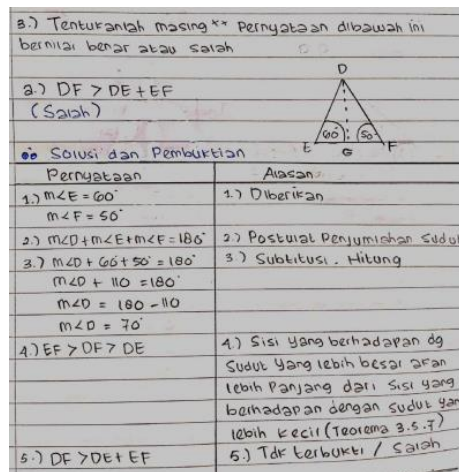 3.) Tentukanlah masing ** Pernyataan dibawah ini
bernilai benar atau salah
a.) DF > DE + EF
(Salah)
D
60°
50
E
G
F
Solusi dan Pembuktian
Pernyataan
Alasan
1.) m∠E = 60°
1.) Diberikan
m∠F = 50°
2.) m∠D + m∠E + m∠F = 180°
2.) Postulat Penjumlahan Sudut
3.) m∠D + 60 + 50° = 180°
3.) Subtitusi. Hitung
m∠D + 110 = 180°
m∠D = 180 - 110
m∠D = 70°
4.) EF > DF > DE
4.) Sisi yang berhadapan dg
Sudut yang lebih besar akan
lebih Panjang dari Sisi yang
berhadapan dengan sudut yan
lebih kecil (Teorema 3.5.7)
5.) DF > DE + EF
5.) Tdk terbukti / Salah